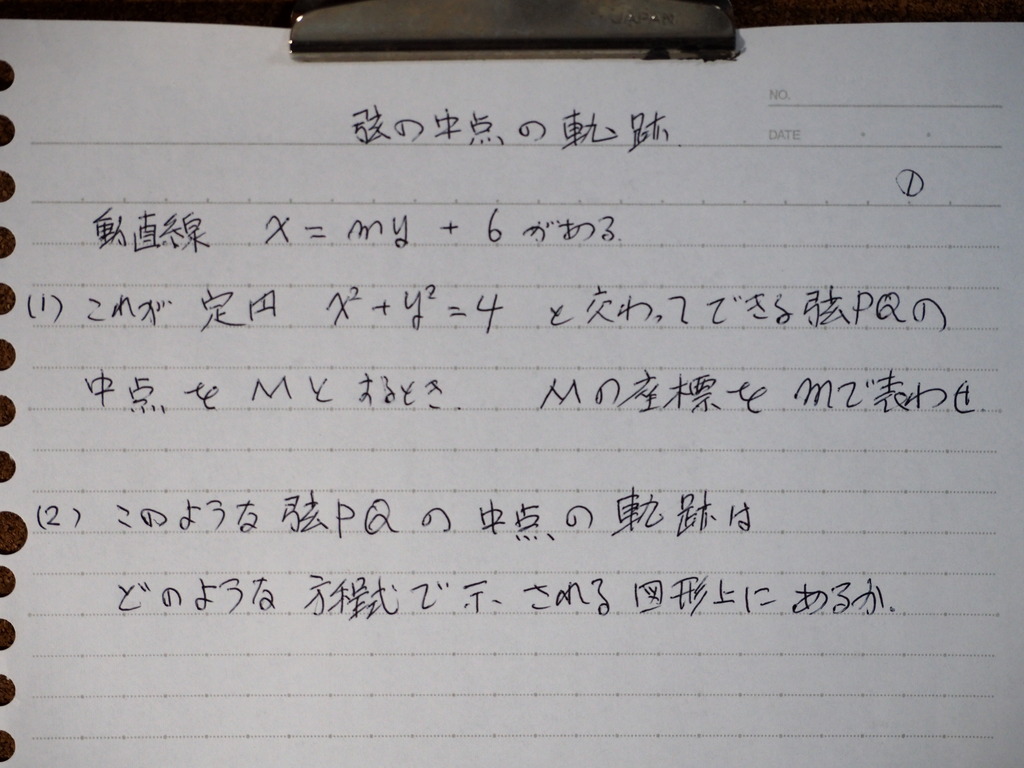 JAPAN
NO.
DATE
弦の中点の軌跡.
①
動直線 x = my + 6 がある.
(1) これが 定円 x²+y²=4 と交わってできる弦PQの
中点を Mとするとき. Mの座標を mで表わせ.
(2) このような弦PQの中点の軌跡は
どのような方程式で示される図形上にあるか.